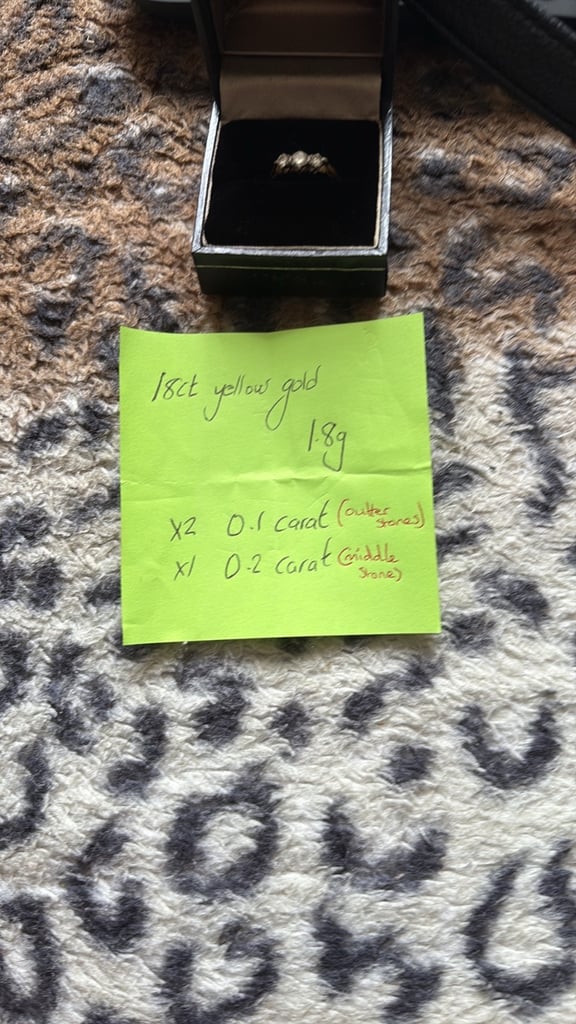 18ct yellow gold
1.8g
x2 0.1 carat (outter stones)
x1 0.2 carat (middle stone)